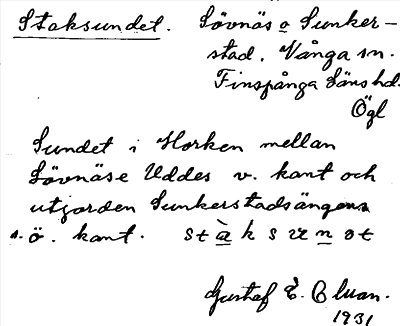 Staksundet. Lövnäs o Sunker-
stad. Vånga sn.
Finspånga Läns hd.
Ögl
Sundet i Horken mellan
Lövnäse Uddes v. kant och
utjorden Sunkerstadsängens
s. ö. kant. st à k s u n et
Gustaf E.
1931